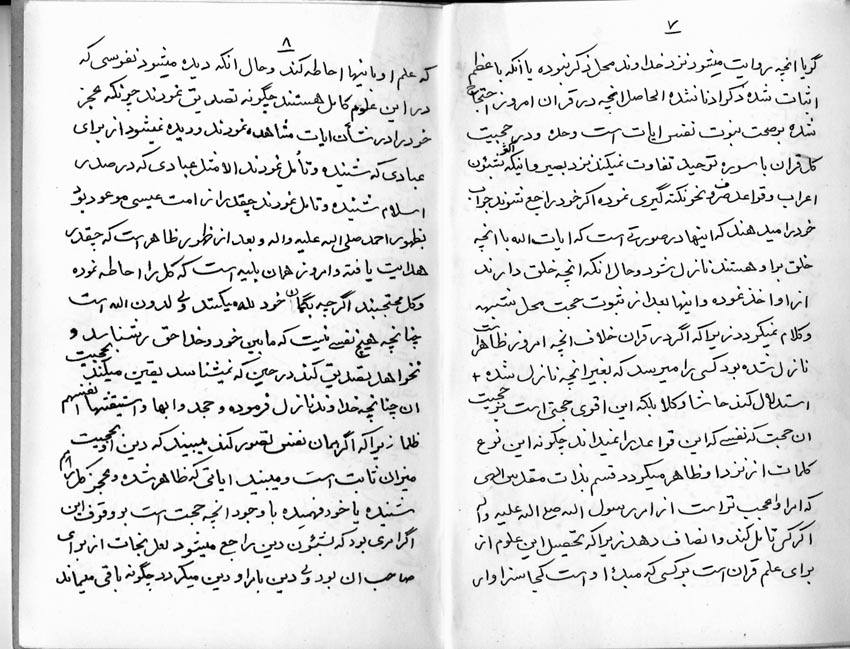 ٧
گویا انچه روایت میشود نزد خداوند محل ذکر نبوده یا آنکه باعظم
اثبات شده ذکر او نازل نشده الحاصل انچه در قران امروز احتجاج
شده بر صحت نبوت نفس ایات است وحده و در حجیت
کل قران با سوره توحید تفاوت نمیکند نزد بصیر و اینکه بشئون
اعراب و قواعد صرف و نحو نکته گیری نموده اگر خود راجع شوند جواب
خود را میدهند که اینها در صورتی است که ایات الله با انچه
خلق براو هستند نازل شود و حال انکه انچه خلق دارند
از او اخذ نموده و اینها بعد از ثبوت حجت محل شبهه
و کلام نمیگردد زیرا که اگر در قران خلاف انچه امروز ظاهر است
نازل شده بود کسی را میرسد که بغیر انچه نازل شده
استدلال کند حاشا و کلا بلکه این اقوی حجتی است بر حجیت
ان حجت که نفسی که این قواعد را نمیداند چگونه این نوع
کلمات از نزد او ظاهر میگردد قسم بذات مقدس الهی
که امر او اعجب تر است از امر رسول الله صلی الله علیه و اله
اگر کسی تامل کند و انصاف دهد زیرا که تحصیل این علوم از
برای علم قران است بر کسی که مبدء او است کجا سزاوار
٨
که علم او بانیها احاطه کند و حال انکه دیده میشود نفوسی که
در این علوم کامل هستند چگونه تصدیق نمودند چونکه عجز
خود را در نشأن ایات مشاهده نمودند و دیده نمیشود از برای
عبادی که شنیده و تأمل نمودند الا مثل عبادی که در صدر
اسلام شنیده و تامل نمودند چقدر از امت عیسی موعود بود
بظهور احمد صلی الله علیه و اله و بعد از ظهور ظاهر است که چقدر
هدایت یافته و امروز همان بلیه است که کل را احاطه نموده
و کل محتجبند اگر چه بگمان خود لله میکنند ولی لدون الله است
چنانچه هیچ نفسی نیست که ما بین خود و خدا حق را بشناسد و
نخواهد تصدیق کند در حین که نمیشناسد یقین میکند بحجیت
ان چنانچه خداوند نازل فرموده و جحدوا بها و استیقنتها انفسهم
ظلما زیرا که اگر همان نفس تصور کند میبیند که دین او بحجیت
میزان ثابت است و میبیند ایاتی که ظاهر شده و عجز کل را هم
شنیده یا خود فهمیده با وجود انچه حجت است بر وقوف این
اگر امری بود که بشئون دین راجع میشود لعل نجات از برای
صاحب ان بود ولی دین بامر او دین میگردد چگونه باقی میماند